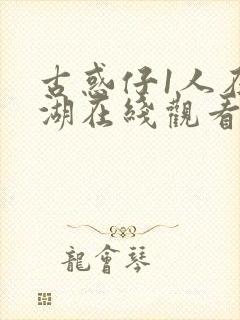 古惑仔1人在
湖在綫觀看
龍會琴